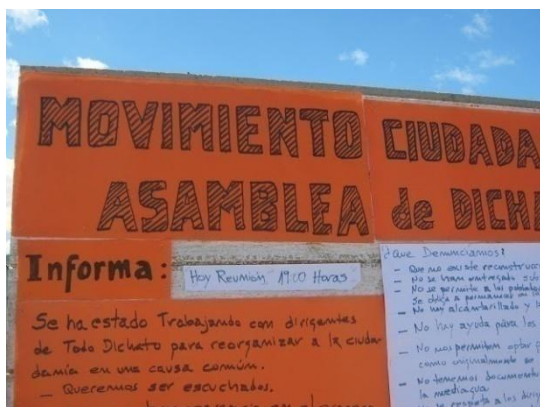 MOVIMIENTO CIUDADA
ASAMBLEA de DICH
Informa:
Hoy Reunión 19:00 Horas
Se ha estado Trabajando con dirigentes
de Todo Dichato para reorganizar a la ciuda
damia en una causa común.
- Queremos ser escuchados.
¿Que Denunciamos?
- Que no existe reconstrucc
- No se han entregado sub
- No se permite a los poblado
- No hay alcantarillado y l
- No hay ayuda para los
- No nos permiten optar p
como originalmente se
- No tenemos documento
la mediagua